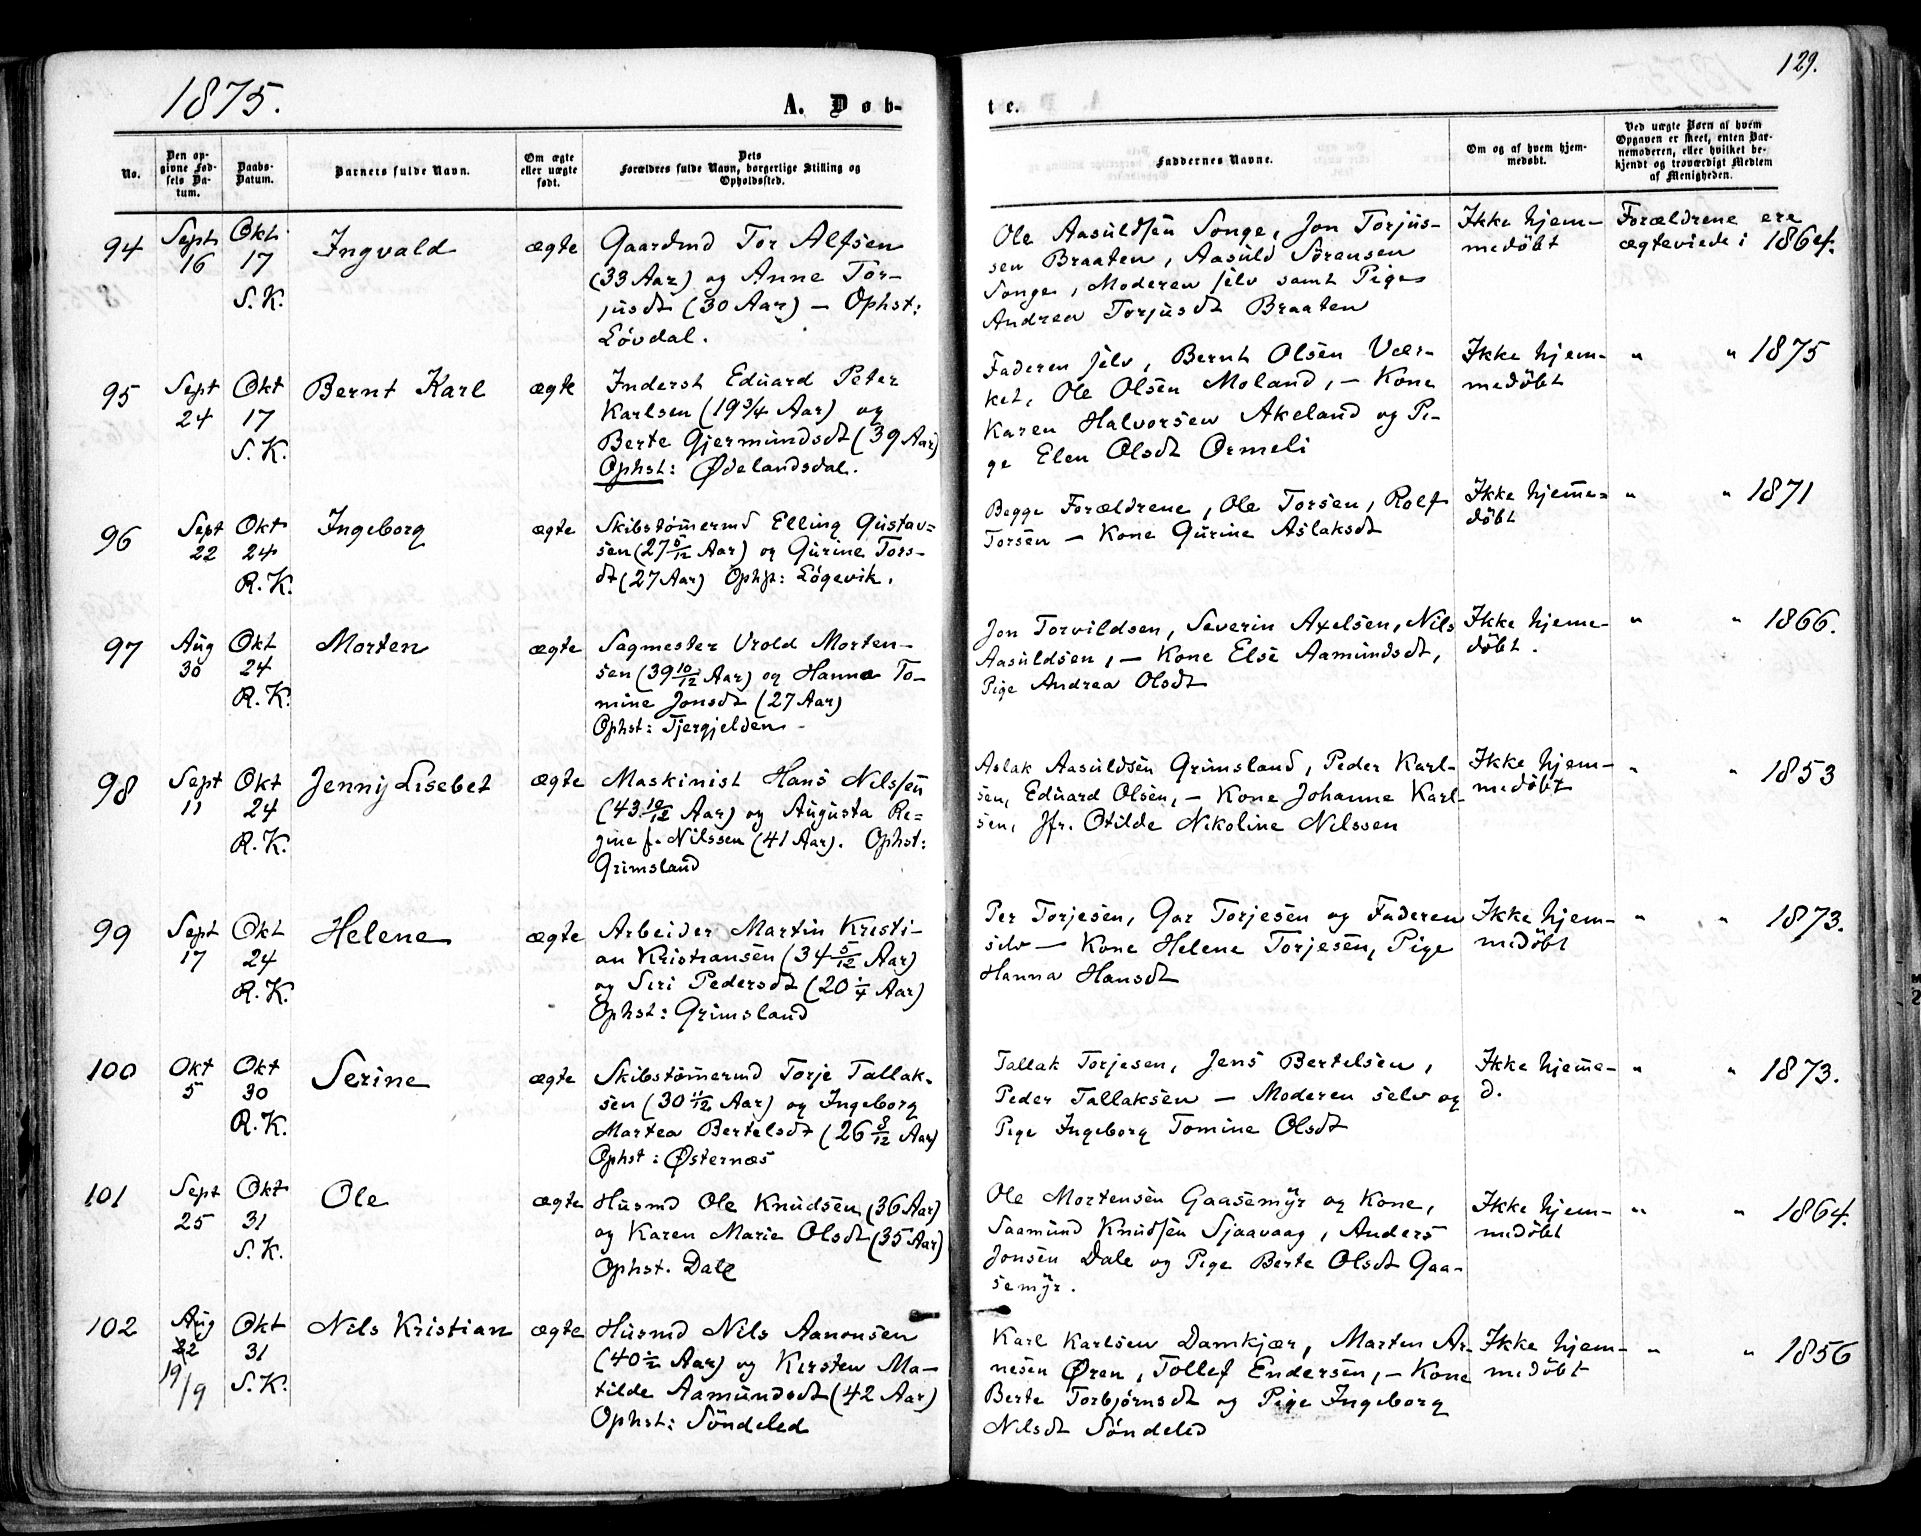 1875.
A. Døb-
te.
129.
No.
Den op-
givne Fød-
sels Da-
tum.
Daabs-
Datum.
Barnets fulde Navn.
Om ægte
eller uægte
født.
Dets
Forældres fulde Navn, borgerlige Stilling og
Opholdssted.
Faddernes Navne.
Om og af hvem hjem-
medøbt.
Ved uægte Børn af hvem
Opgaven er skeet, enten Bar-
nemoderen, eller hvilket be-
kjendt og troværdigt Medlem
af Menigheden.
94
Sept
16
Okt
17
S. K.
Ingvald
ægte
Gaardmd Tor Alfsen
(33 Aar) og Anne Tor-
jusdt (30 Aar) — Ophst:
Løvdal.
Ole Aasuldsen Songe, Jon Torjus-
sen Braaten, Aasuld Sørensen
Songe, Moderen selv samt Pige
Andrea Torjusdt Braaten
Ikke hjem-
medøbt
Forældrene ere
ægteviede i 1864.
95
Sept
24
Okt
17
S. K.
Bernt Karl
ægte
Inderst Eduard Peter
Karlsen (19 3/4 Aar) og
Berte Gjermundsdt (39 Aar)
Ophst: Ødelandsdal.
Faderen selv, Bernt Olsen Vær-
ket, Ole Olsen Moland, — Kone
Karen Halvorsen Akeland og Pi-
ge Elen Olsdt Ormeli
Ikke hjem-
medøbt
" " 1875
96
Sept
22
Okt
24
R. K.
Ingeborg
ægte
Skibstømermd Elling Gustav=
sen (27 5/12 Aar) og Gurine Tors-
dt (27 Aar) Ophst: Løgevik.
Begge Forældrene, Ole Torsen, Rolf
Torsen — Kone Gurine Aslaksdt
Ikke hjeme=
døbt
" " 1871
97
Aug
30
Okt
24
R. K.
Morten
ægte
Sagmester Vrold Morten-
sen (39 10/12 Aar) og Hanna To-
mine Jonsdt (27 Aar)
Ophst: Tjergjelden -
Jon Torvildsen, Severin Axelsen, Nils
Aasuldsen, — Kone Else Aamundsdt,
Pige Andrea Olsdt
Ikke hjeme-
døbt.
" " 1866.
98
Sept
11
Okt
24
R. K.
Jenny Lisebet
ægte
Maskinist Hans Nilssen
(43 10/12 Aar) og Augusta Re=
gine f. Nilssen (41 Aar). Ophst:
Grimsland
Aslak Aasuldsen Grimsland, Peder Karl-
sen, Eduard Olsen, — Kone Johanne Karl-
sen, Jfr. Otilde Nikoline Nilssen
Ikke hjem-
medøbt
" " 1853
99
Sept
17
Okt
24
R. K.
Helene
ægte
Arbeider Martin Kristi-
an Kristiansen (34 5/12 Aar)
og Siri Pedersdt (20 1/4 Aar)
Ophst: Grimsland
Per Torjesen, Gar Torjesen og Faderen
selv — Kone Helene Torjesen, Pige
Hanna Hansdt
Ikke hjem-
medøbt
" " 1873.
100
Okt
5
Okt
30
R. K.
Serine
ægte
Skibstømermd Torje Tallak-
sen (30 11/12 Aar) og Ingeborg
Martea Bertelsdt (26 8/12 Aar)
Ophst: Østernæs
Tallak Torjesen, Jens Bertelsen,
Peder Tallaksen — Moderen selv og
Pige Ingeborg Tomine Olsdt
Ikke hjeme-
d.
" " 1873.
101
Sept
25
Okt
31
S. K.
Ole
ægte
Husmd Ole Knudsen (36 Aar)
og Karen Marie Olsdt (35 Aar)
Ophst. Dale
Ole Mortensen Gaasemyr og Kone,
Saamund Knudsen Sjaavaag, Anders
Jonsen Dale og Pige Berte Olsdt Gaa-
semyr.
Ikke hjem-
medøbt
" " 1864.
102
Aug
22
19/9
Okt
31
S. K.
Nils Kristian
ægte
Husmd Nils Aanonsen
(40 1/2 Aar) og Kirsten Ma-
tilde Aamundsdt (42 Aar)
Ophst: Søndeled
Karl Karlsen Damkjær, Marten Ar-
nesen Øren, Tollef Endersen, — Kone
Berte Torbjørnsdt og Pige Ingeborg
Nilsdt Søndeled
Ikke hjem-
medøbt
" " 1856